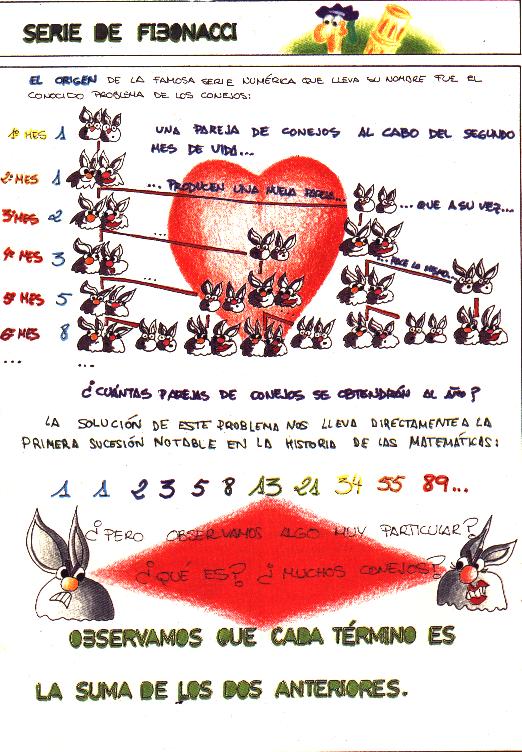 SERIE DE FIBONACCI
EL ORIGEN DE LA FAMOSA SERIE NUMÉRICA QUE LLEVA SU NOMBRE FUE EL
CONOCIDO PROBLEMA DE LOS CONEJOS:
1º MES 1
UNA PAREJA DE CONEJOS AL CABO DEL SEGUNDO
MES DE VIDA...
2º MES 1
... PRODUCEN UNA NUEVA PAREJA...
... QUE A SU VEZ...
3º MES 2
4º MES 3
...
... HACE LO MISMO.
5º MES 5
...
6º MES 8
... ...
¿CUÁNTAS PAREJAS DE CONEJOS SE OBTENDRÁN AL AÑO?
LA SOLUCIÓN DE ESTE PROBLEMA NOS LLEVA DIRECTAMENTE A LA
PRIMERA SUCESIÓN NOTABLE EN LA HISTORIA DE LAS MATEMÁTICAS:
1 1 2 3 5 8 13 21 34 55 89...
¿PERO OBSERVAMOS ALGO MUY PARTICULAR?
¿QUÉ ES? ¿MUCHOS CONEJOS?
OBSERVAMOS QUE CADA TÉRMINO ES
LA SUMA DE LOS DOS ANTERIORES.